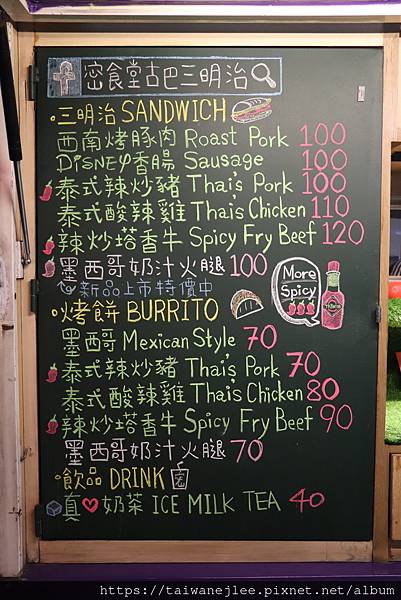 密食堂古巴三明治
三明治 SANDWICH
西南烤豚肉 Roast Pork 100
DiSNEY香腸 Sausage 100
泰式辣炒豬 Thai's Pork 100
泰式酸辣雞 Thai's Chicken 110
辣炒塔香牛 Spicy Fry Beef 120
墨西哥奶汁火腿 100
新品上市特價中
More Spicy
烤餅 BURRITO
墨西哥 Mexican Style 70
泰式辣炒豬 Thai's Pork 70
泰式酸辣雞 Thai's Chicken 80
辣炒塔香牛 Spicy Fry Beef 90
墨西哥奶汁火腿 70
飲品 DRINK
真❤奶茶 ICE MILK TEA 40
https://taiwanejlee.pixnet.net/album